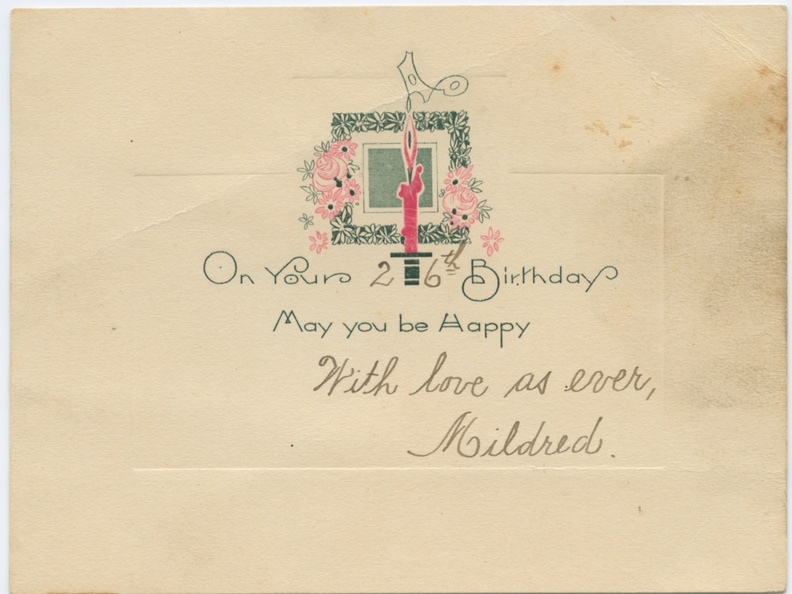 On Your 26th Birthday
May you be Happy
With love as ever,
Mildred.